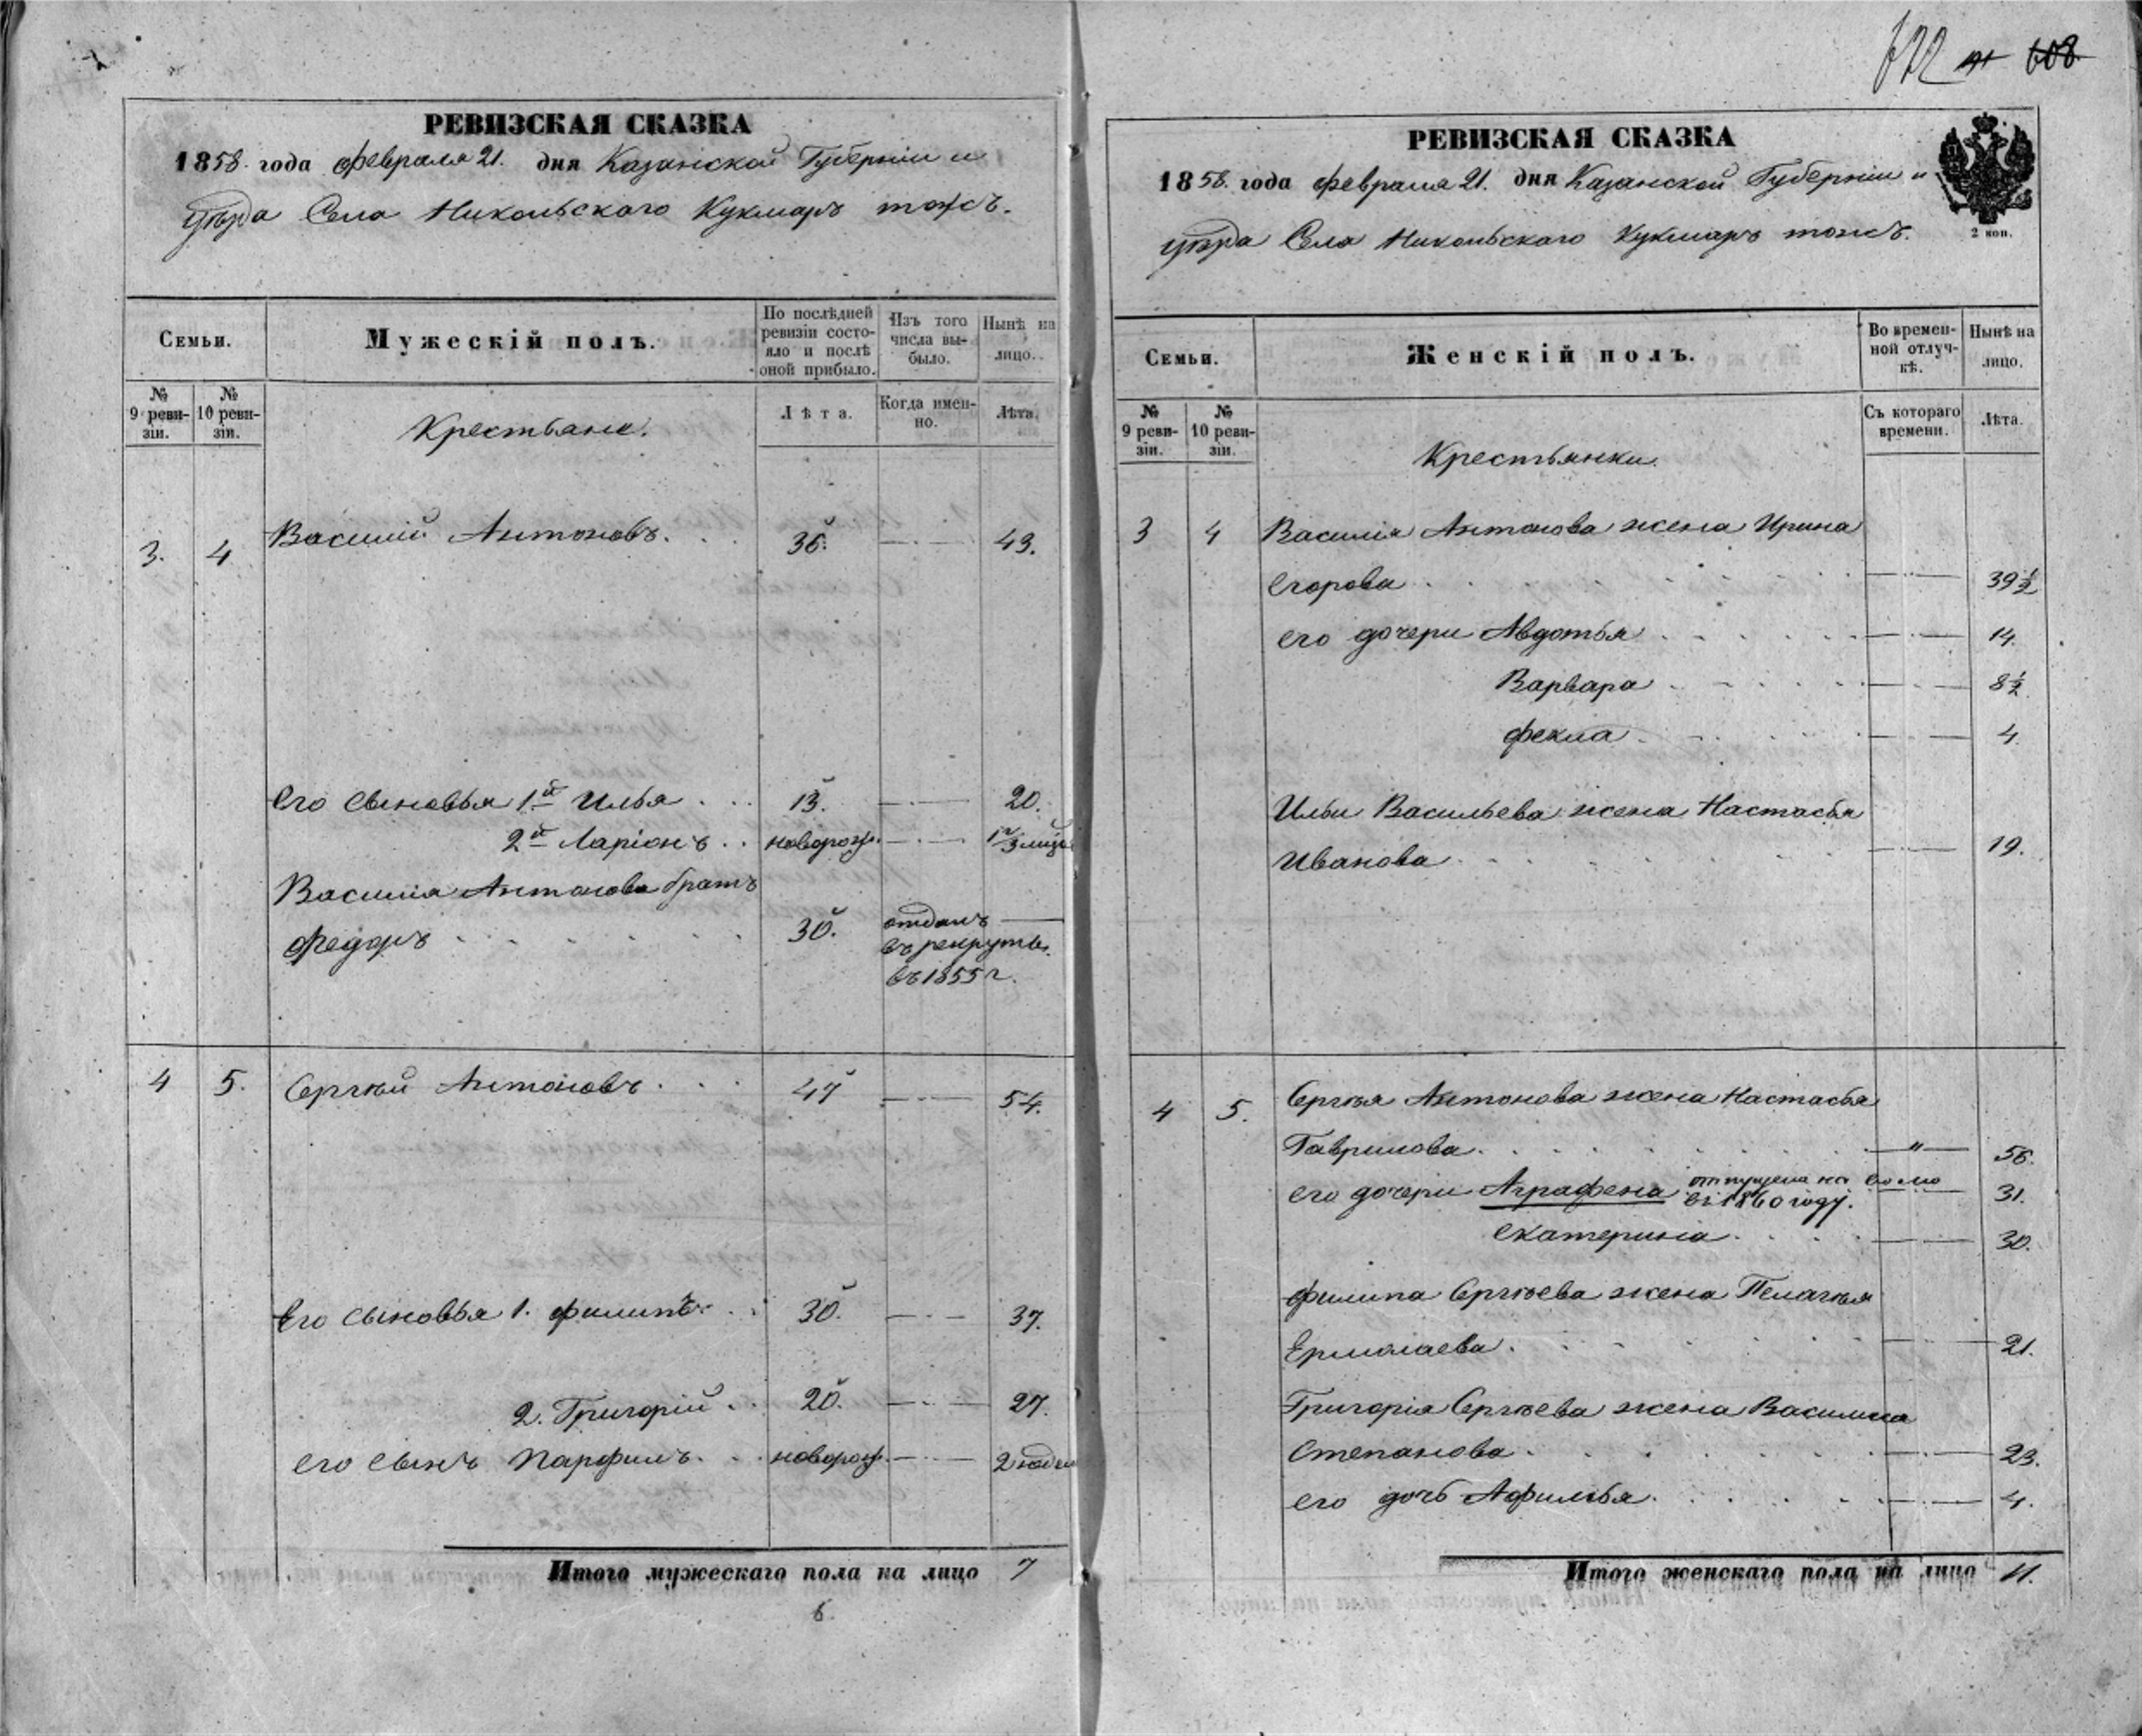 РЕВИЗСКАЯ СКАЗКА
1858 года февраля 21. дня Казанской Губерніи и
уѣзда Села Никольскаго Кукмаръ тожъ.
Семьи.
Мужескій полъ.
По послѣдней ревизіи состояло и послѣ оной прибыло.
Изъ того числа выбыло.
Нынѣ на лицо.
№ 9 ревизіи.
№ 10 ревизіи.
Крестьяне.
Лѣта.
Когда именно.
Лѣта.
3. 4 Василій Антоновъ. 36. 43.
Его сыновья 1й Илья 13. 20.
2й Ларіонъ новорож.
Василія Антонова братъ
Федоръ 30. отданъ
въ рекруты
въ 1855 г.
4 5. Сергѣй Антоновъ 47 54.
Его сыновья 1. Филипъ 30. 37.
2. Григорій 20. 27.
его сынъ Парфилъ новорож. 2 недели
Итого мужескаго пола на лицо 7
6.
672 608
РЕВИЗСКАЯ СКАЗКА
1858. года февраля 21. дня Казанской Губерніи и
уѣзда Села Никольскаго Кукмаръ тожъ.
2 коп.
Семьи.
Женскій полъ.
Во временной отлучкѣ.
Нынѣ на лицо.
№ 9 ревизіи.
№ 10 ревизіи.
Крестьянки
Съ котораго времени.
Лѣта.
3 4 Василія Антонова жена Ирина
Егорова 39½
его дочери Авдотья 14.
Варвара 8½
Фекла 4.
Ильи Васильева жена Настасья
Иванова 19.
4 5. Сергѣя Антонова жена Настасья
Гаврилова 56.
его дочери Аграфена отпущена на волю въ 1860 году. 31.
Екатерина 30.
Филипа Сергѣева жена Пелагѣя
Ермолаева 21.
Григорія Сергѣева жена Василиса
Степанова 23.
его дочь Афилья 4.
Итого женскаго пола на лицо 11.